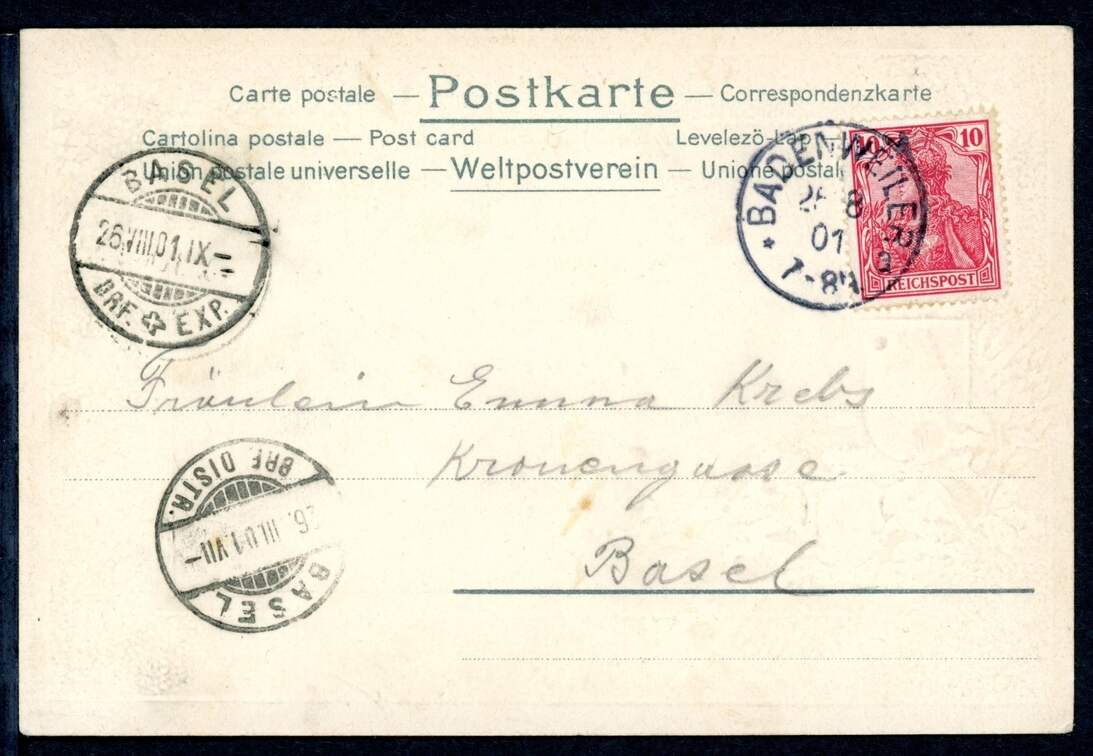 Carte postale — Postkarte — Correspondenzkarte
Cartolina postale — Post card Levelezö-Lap
Union postale universelle — Weltpostverein — Unione postal
BASEL
26.VIII.01.IX–
BRF. EXP.
* BADENWEILER
8
01
7-8N
10 10
REICHSPOST
Fräulein Emma Krebs
Kronengasse
Basel
BRF. DISTR.
26. III.01.VII–
BASEL